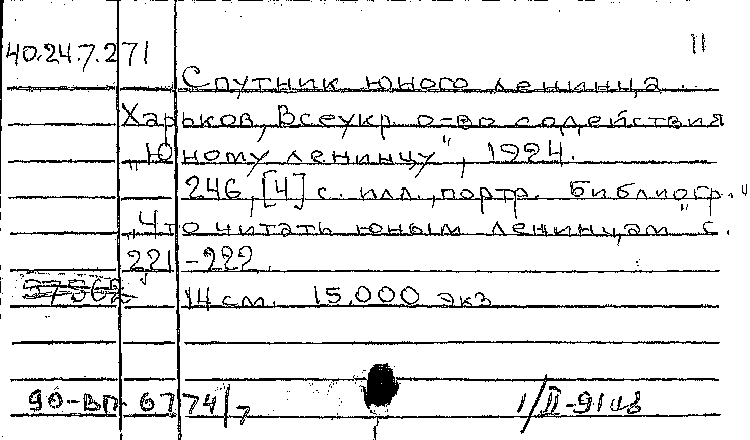 40.24.7.271 11
Спутник юного ленинца.
Харьков, Всеукр. о-во содействия
„Юному ленинцу", 1924.
246, [4] с. илл., портр. Библиогр. "
„Что читать юным ленинцам" с.
221-222.
37562 14 см. 15.000 экз
90-ВП 6774/7 1/II-91